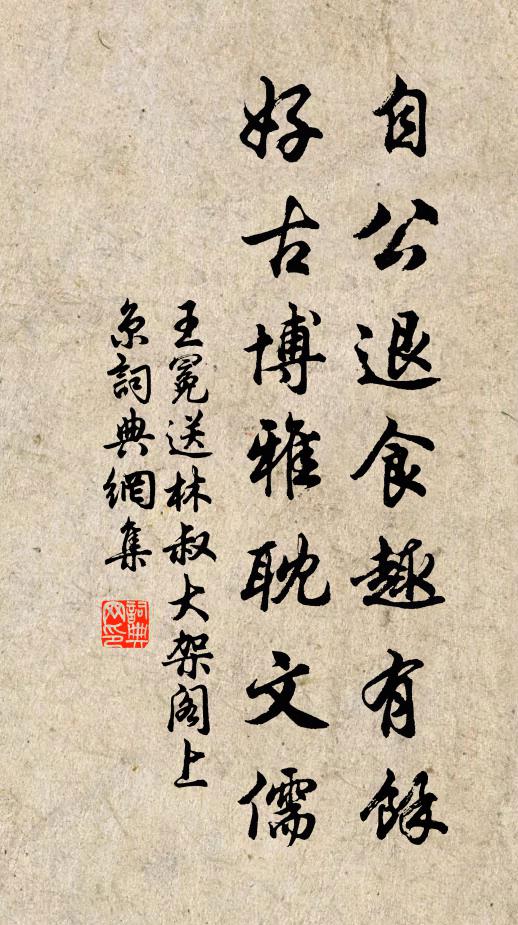 自公退食趣有餘
好古博雅耽文儒
王冕送林叔大架阁上
京詞典網集
詞典
网印